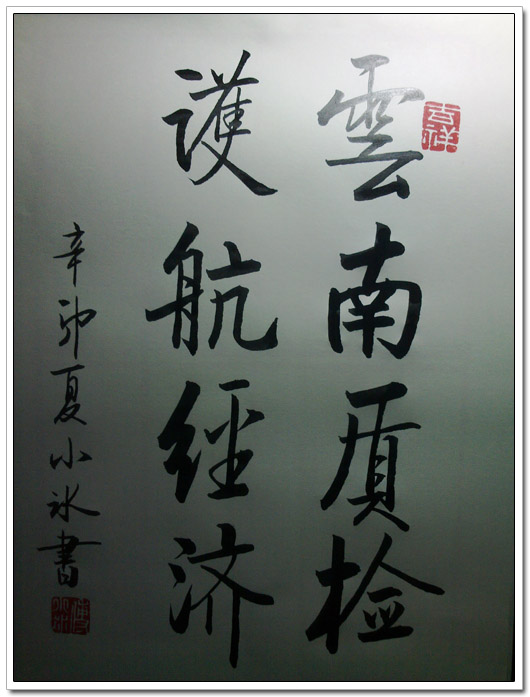 雲南质检
護航經济
辛卯夏小冰書
吉祥